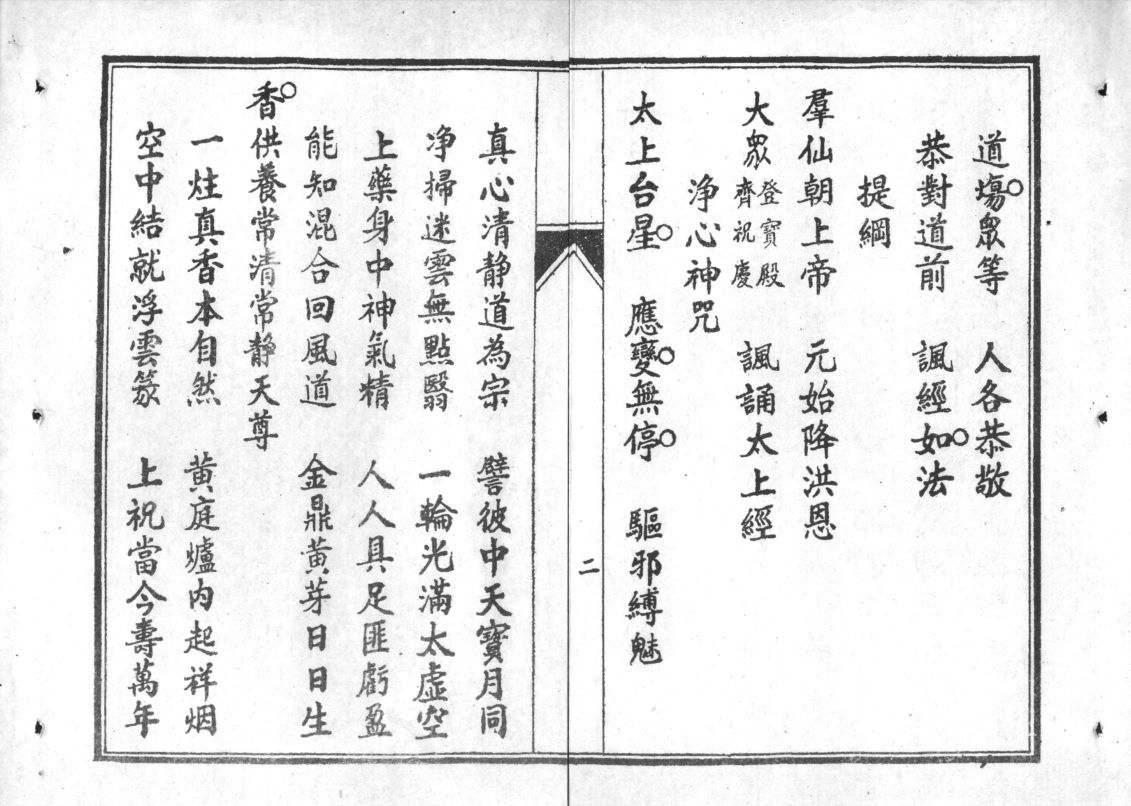 道場眾等　人各恭敬
恭對道前　諷經如法
提綱
羣仙朝上帝　元始降洪恩
大眾登寶殿齊祝慶　諷誦太上經
淨心神咒
太上台星　應變無停　驅邪縛魅
二
真心清静道為宗　譬彼中天寶月同
净掃迷雲無點翳　一輪光滿太虛空
上藥身中神氣精　人人具足匪虧盈
能知混合回風道　金鼎黃芽日日生
香供養常清常静天尊
一炷真香本自然　黃庭爐内起祥烟
空中結就浮雲篆　上祝當今壽萬年